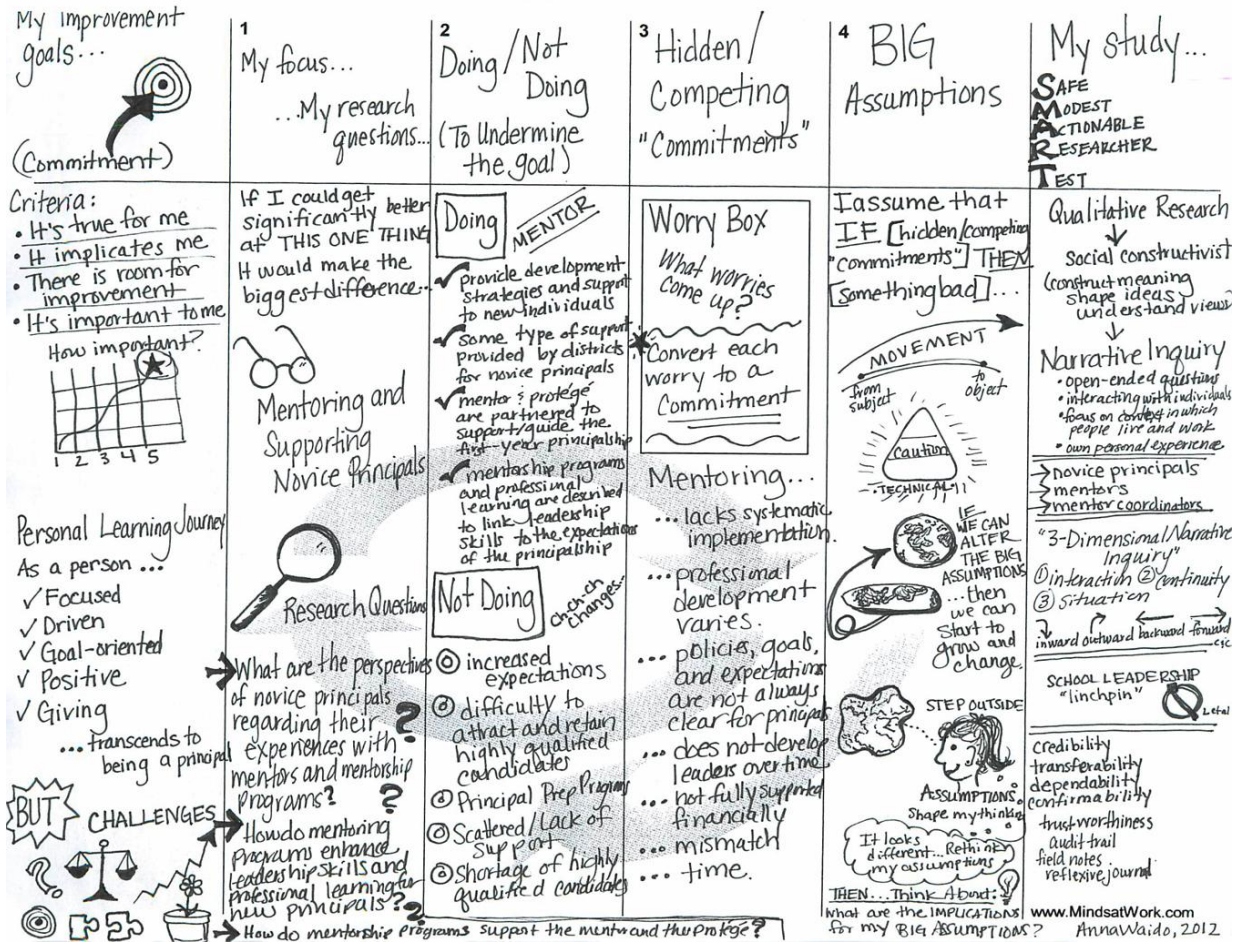 My improvement
goals...
(Commitment)
Criteria:
• It's true for me
• It implicates me
• There is room for
improvement
• It's important to me
How important?
1 2 3 4 5
Personal Learning Journey
As a person ...
✓ Focused
✓ Driven
✓ Goal-oriented
✓ Positive
✓ Giving
... transcends to
being a principal
BUT
CHALLENGES
?
1
My focus...
...My research
questions...
If I could get
significantly better
at THIS ONE THING
it would make the
biggest difference...
Mentoring and
Supporting
Novice Principals
Research Questions
What are the perspectives
of novice principals
regarding their
experiences with
mentors and mentorship
programs?
?
?
How do mentoring
programs enhance
leadership skills and
professional learning for
new principals?
?
How do mentorship programs support the mentor and the Protégé?
2
Doing/Not
Doing
(To Undermine
the goal)
Doing
MENTOR
✓ provide development
strategies and support
to new individuals
✓ some type of support
provided by districts
for novice principals
✓ mentor & protégé
are partnered to
support/guide the
first-year principalship
✓ mentorship programs
and professional
learning are described
to link leadership
skills to the expectations
of the principalship
Not Doing
ch-ch-ch
changes...
increased
expectations
difficulty to
attract and retain
highly qualified
candidates
Principal Prep Programs
Scattered/Lack of
support
Shortage of highly
qualified candidates
3
Hidden/
Competing
"Commitments"
Worry Box
What worries
come up?
Convert each
worry to a
Commitment
Mentoring...
...lacks systematic
implementation.
... professional
development
varies.
... policies, goals,
and expectations
are not always
clear for principals
... does not develop
leaders over time
... not fully supported
financially
... mismatch
... time.
4
BIG
Assumptions
I assume that
IF [hidden/competing
"commitments"] THEN
[something bad]...
MOVEMENT
from
subject
to
object
caution
• TECHNICAL •
IF
WE CAN
ALTER
THE BIG
ASSUMPTIONS
...then
we can
start to
grow and
change.
STEP OUTSIDE
ASSUMPTIONS
Shape my thinking
It looks
different... Rethink
my assumptions
THEN... Think About:
What are the IMPLICATIONS
for my BIG ASSUMPTIONS?
My study...
SAFE
MODEST
ACTIONABLE
RESEARCHER
TEST
Qualitative Research
Social constructivist
(construct meaning
shape ideas
understand views)
Narrative Inquiry
• open-ended questions
• interacting with individuals
• focus on context in which
people live and work
• own personal experience
novice principals
mentors
mentor coordinators
"3-Dimensional Narrative
Inquiry"
① interaction ② continuity
③ situation
inward outward backward forward
SCHOOL LEADERSHIP
"linchpin"
credibility
transferability
dependability
confirmability
trustworthiness
audit trail
field notes
reflexive journal
www.MindsatWork.com
Anna Waido, 2012